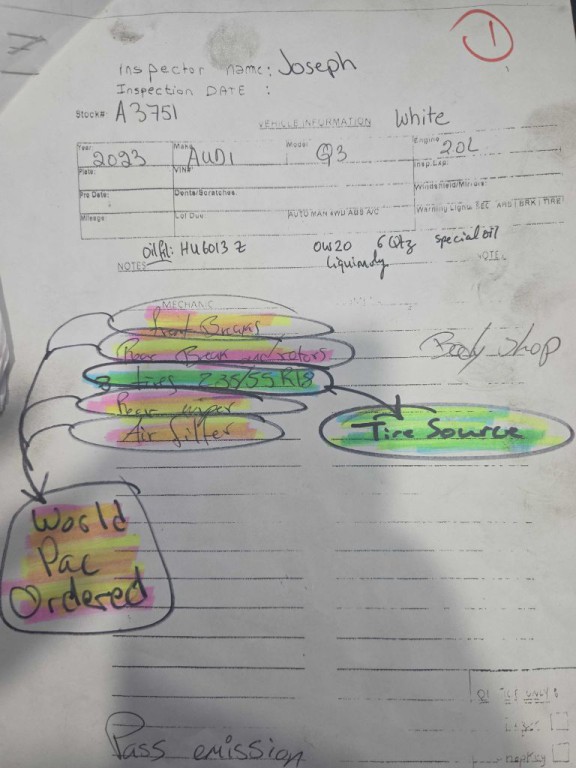 1
Inspector name: Joseph
Inspection DATE :
Stock#: A3751
VEHICLE INFORMATION White
Year: 2023 Make: AUDI Model Q3 Engine 2.0L
Plate: VIN# Insp.Exp:
Pro Date: Dents/Scratches: Windshield/Mirrors:
Mileage: Lot Due AUTO MAN 4WD ABS A/C Warning Lights
oil fil: HU6013 Z 0W20 6 Qtz special oil
liquimoly
NOTES
MECHANIC
Front Breaks
Rear Break and rotors
Body shop
235/55 R18
Rear wiper
Air filter
Tire Source
World
Pac
Ordered
Pass emission